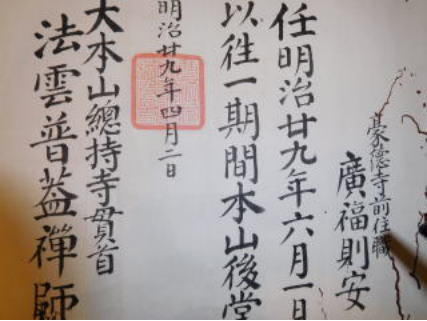 豪德寺前住職
廣福則安
任明治廿九年六月一日
以徃一期間本山後堂
明治廿九年四月二日
大本山總持寺貫首
法雲普葢禪師